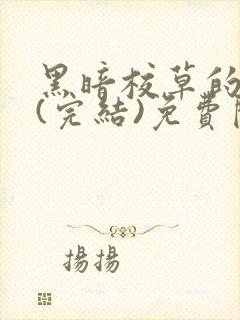 黑暗校草的
(完結)免費
揚揚